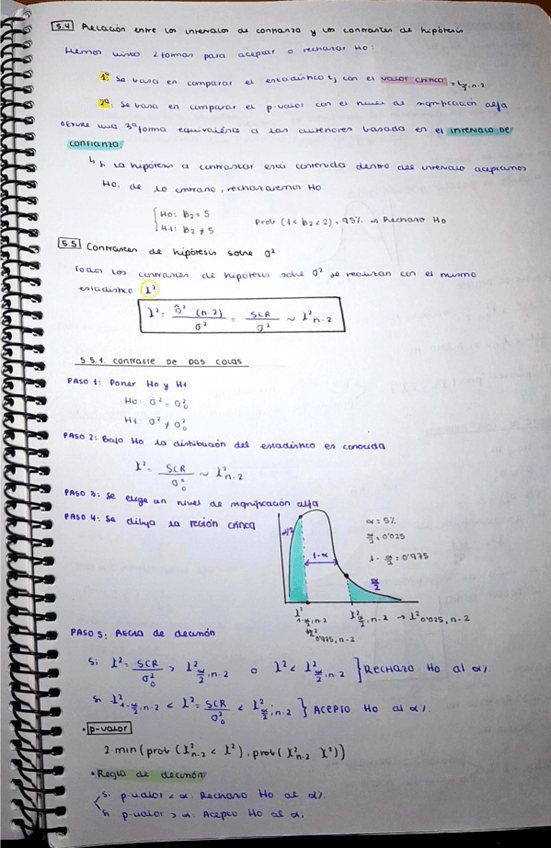 5.4 Relación entre los intervalos de confianza y los contrastes de hipótesis
Hemos visto 2 formas para aceptar o rechazar H0:
1º Se basa en comparar el estadístico t, con el valor crítico = t α/2, n-2
2º Se basa en comparar el p-valor con el nivel de significación alfa
existe una 3ª forma equivalente a las anteriores basado en el INTERVALO DE
CONFIANZA.
↳ si la hipótesis a contrastar está contenida dentro del intervalo aceptamos
H0. de lo contrario, rechazaremos H0
{ H0: b2 = 5
H1: b2 ≠ 5
Prob (1 < b2 < 2) = 95% → Rechazo H0
5.5 Contrastes de hipótesis sobre σ²
Todos los contrastes de hipótesis sobre σ² se realizan con el mismo
estadístico: λ²
λ² = σ̂² (n-2) / σ² = SCR / σ² ~ λ² n-2
5.5.1. CONTRASTE DE DOS COLAS
PASO 1: Poner H0 y H1
H0: σ² = σ²0
H1: σ² ≠ σ²0
PASO 2: Bajo H0 la distribución del estadístico es conocida
λ² = SCR / σ²0 ~ λ² n-2
PASO 3: Se elige un nivel de significación alfa
PASO 4: Se dibuja la región crítica
α/2
1-α
α/2
α = 5%
α/2 = 0'025
1 - α/2 = 0'975
λ² 1-α/2, n-2
λ² 0'975, n-2
λ² α/2, n-2 → λ² 0'025, n-2
PASO 5: Regla de decisión
Si λ² = SCR / σ²0 > λ² α/2, n-2 o λ² < λ² α/2, n-2 } RECHAZO H0 al α%
si λ² 1-α/2, n-2 < λ² = SCR / σ²0 < λ² α/2, n-2 } ACEPTO H0 al α%.
• p-valor
2·min(prob (λ² n-2 < λ²), prob( λ² n-2 λ²))
• Regla de decisión
si p-valor < α. Rechazo H0 al α%.
si p-valor > α. Acepto H0 al α%.